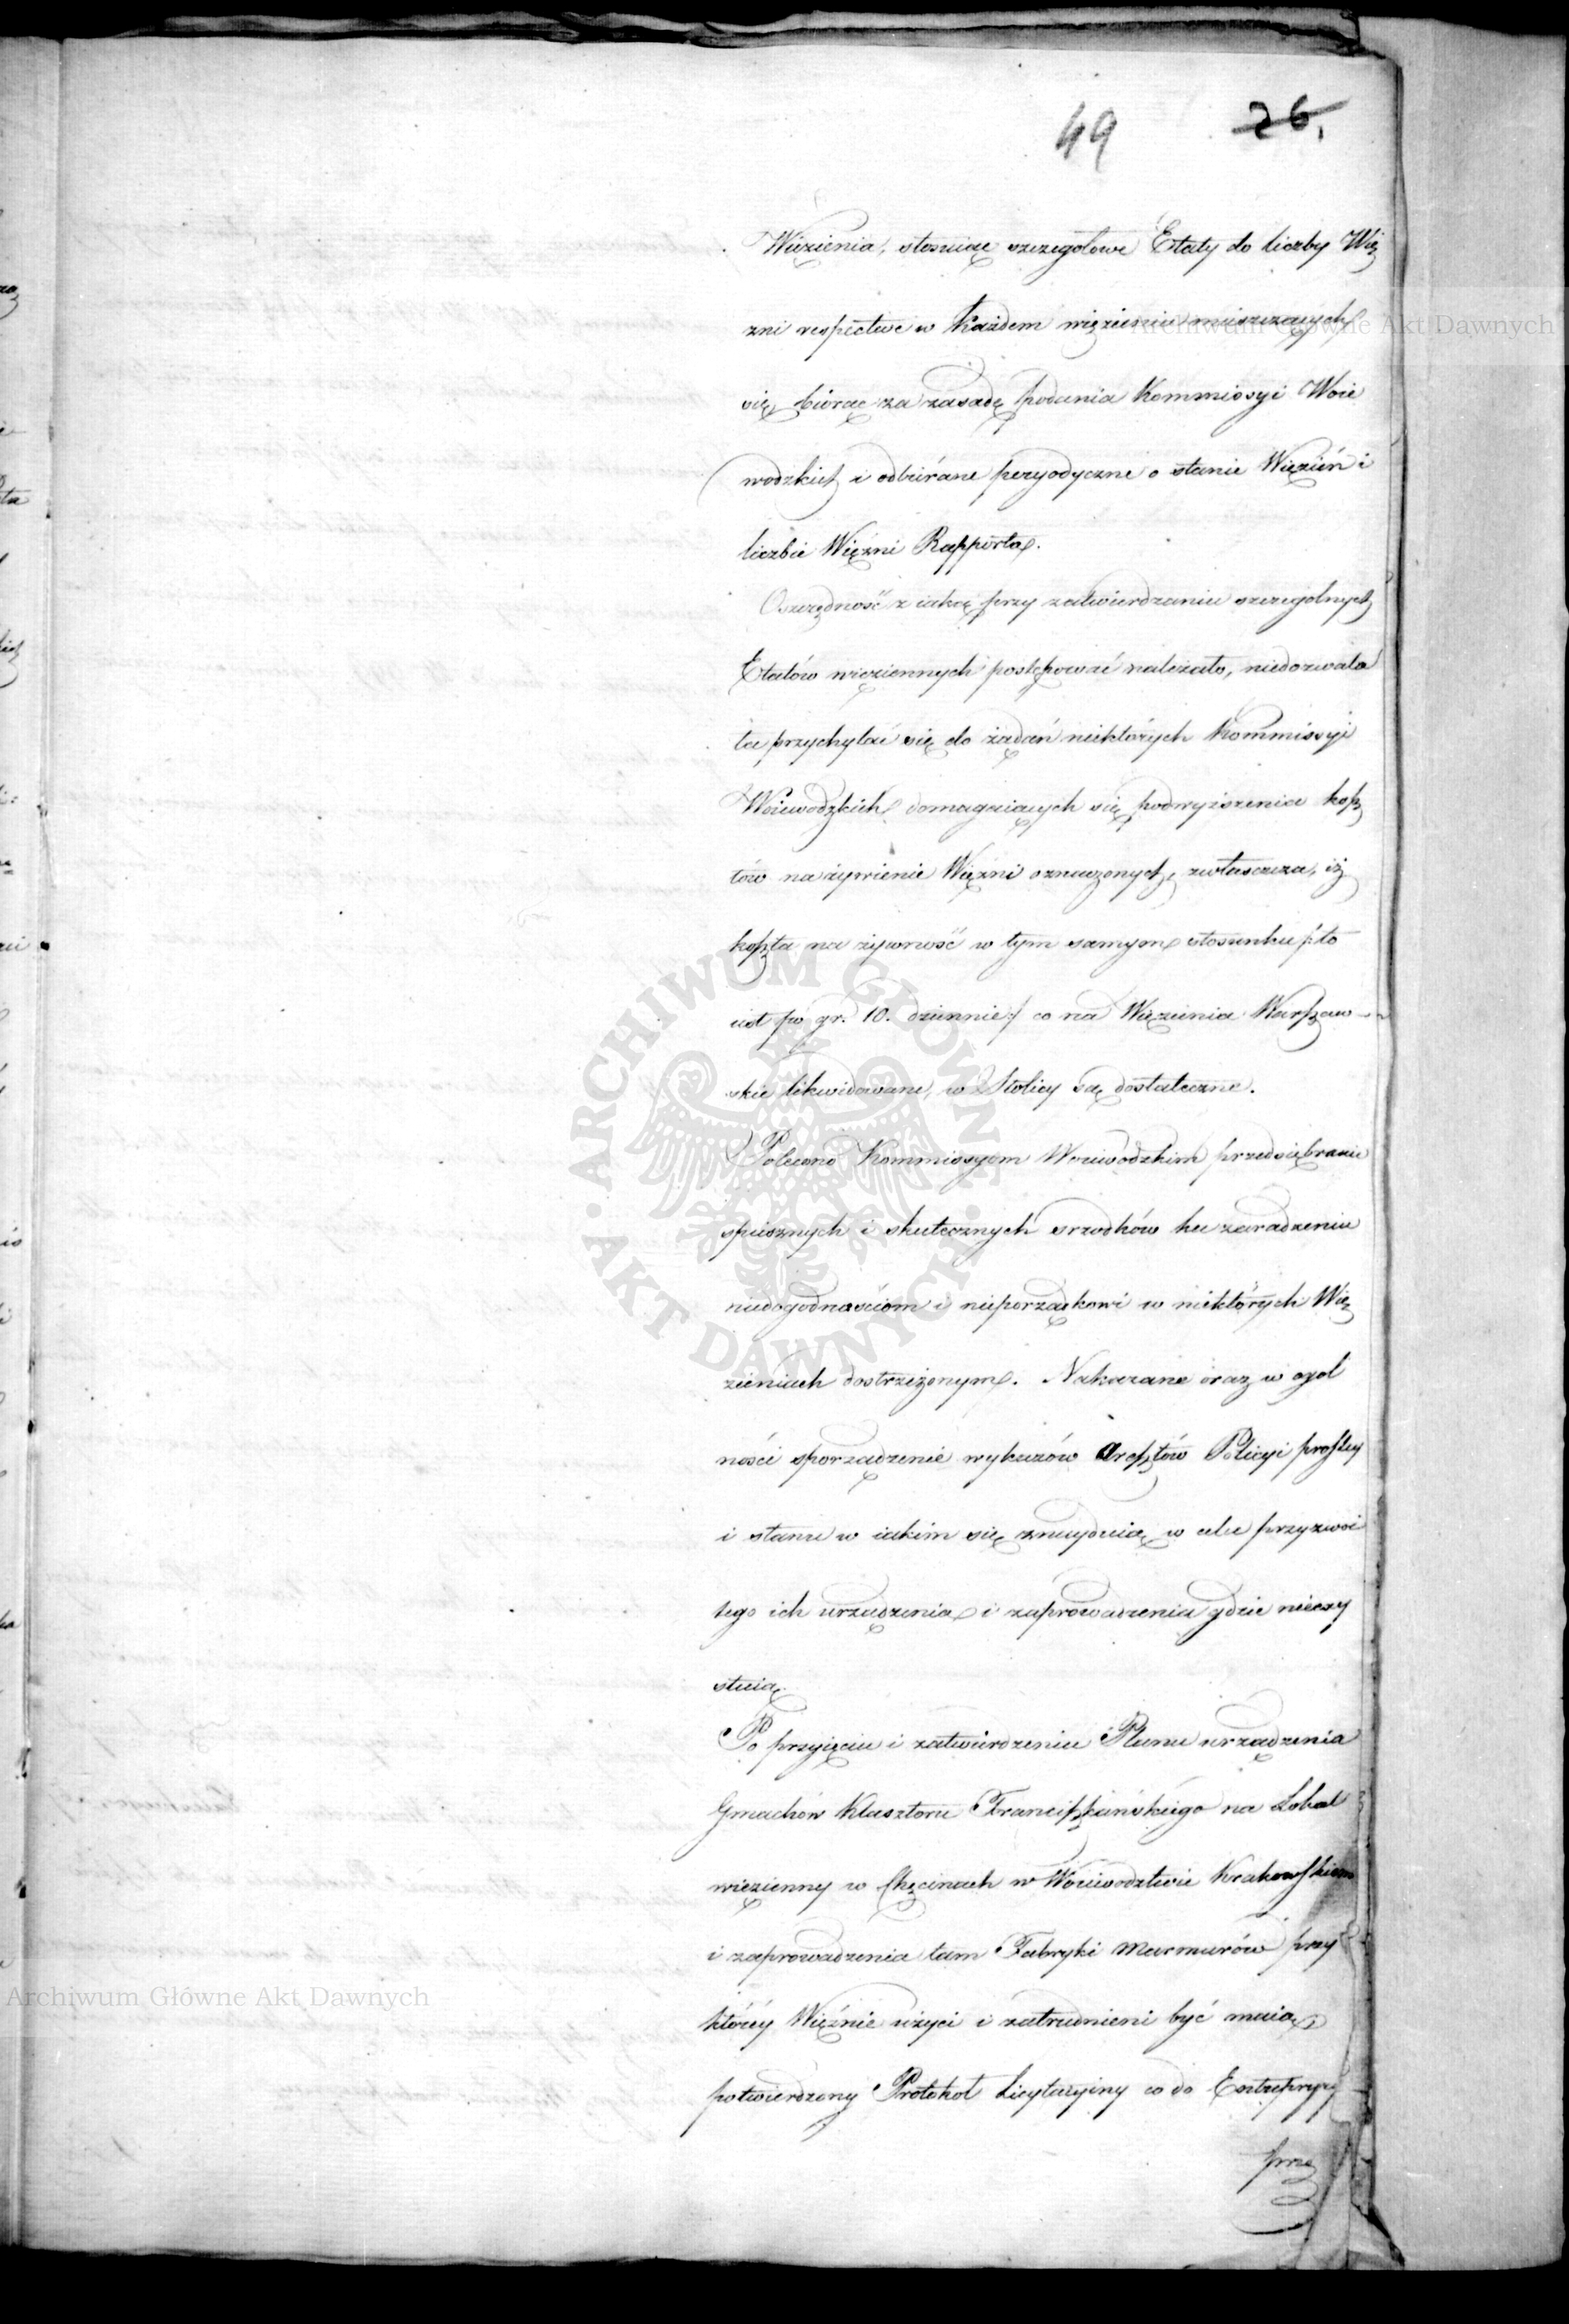 49 26.
Więzienia, stosuiąc szczegolowe Etaty do liczby Wię
zni respective w każdem więzieniu mieszczących
się, biorąc za zasadę podania Kommissyi Woie
wodzkich i odbiérane peryodyczne o stanie Więzień i
liczbie Więzni Rapporta.
Oszczędność z iaką przy zatwierdzaniu szczegolnych
Etatów więziennych postępować należało, niedozwala
ła przychylać się do żądań niektórych Kommissyi
Woiewodzkich domagaiących się podwyższenia kosz
tów na żywienie Więzni oznaczonych, zwłaszcza, iż
koszta na żywność w tym samym stosunku /:to
iest po gr. 10. dziennie:/ co na Więzienia Warszaw-
skie likwidowane, w Stolicy są dostateczne.
Polecono Kommissyom Woiewodzkim przedsiębranie
spiesznych i skutecznych srzodków ku zaradzeniu
niedogodnościom i nieporządkowi w niektórych Wię
zieniach dostrzeżonym. Nakazane oraz w ogol
ności sporządzenie wykazów Aresztów Policyi prostey
i stanu w iakim się znayduią, w celu przyzwoi
tego ich urządzenia i zaprowadzenia gdzie nieexy
stuią.
Po przyięciu i zatwierdzeniu Planu urządzenia
Gmachów Klasztoru Franciszkańskiego na Lokal
więzienny w Chęcinach w Woiewodztwie Krakowskiem
i zaprowadzenia tam Fabryki Marmurów przy
któréy Więźnie użyci i zatrudnieni być maią,
potwierdzony Protokoł Licytacyiny co do Entrepryzy
prze
Archiwum Główne Akt Dawnych
Archiwum Główne Akt Dawnych
ARCHIWUM GŁÓWNE AKT DAWNYCH